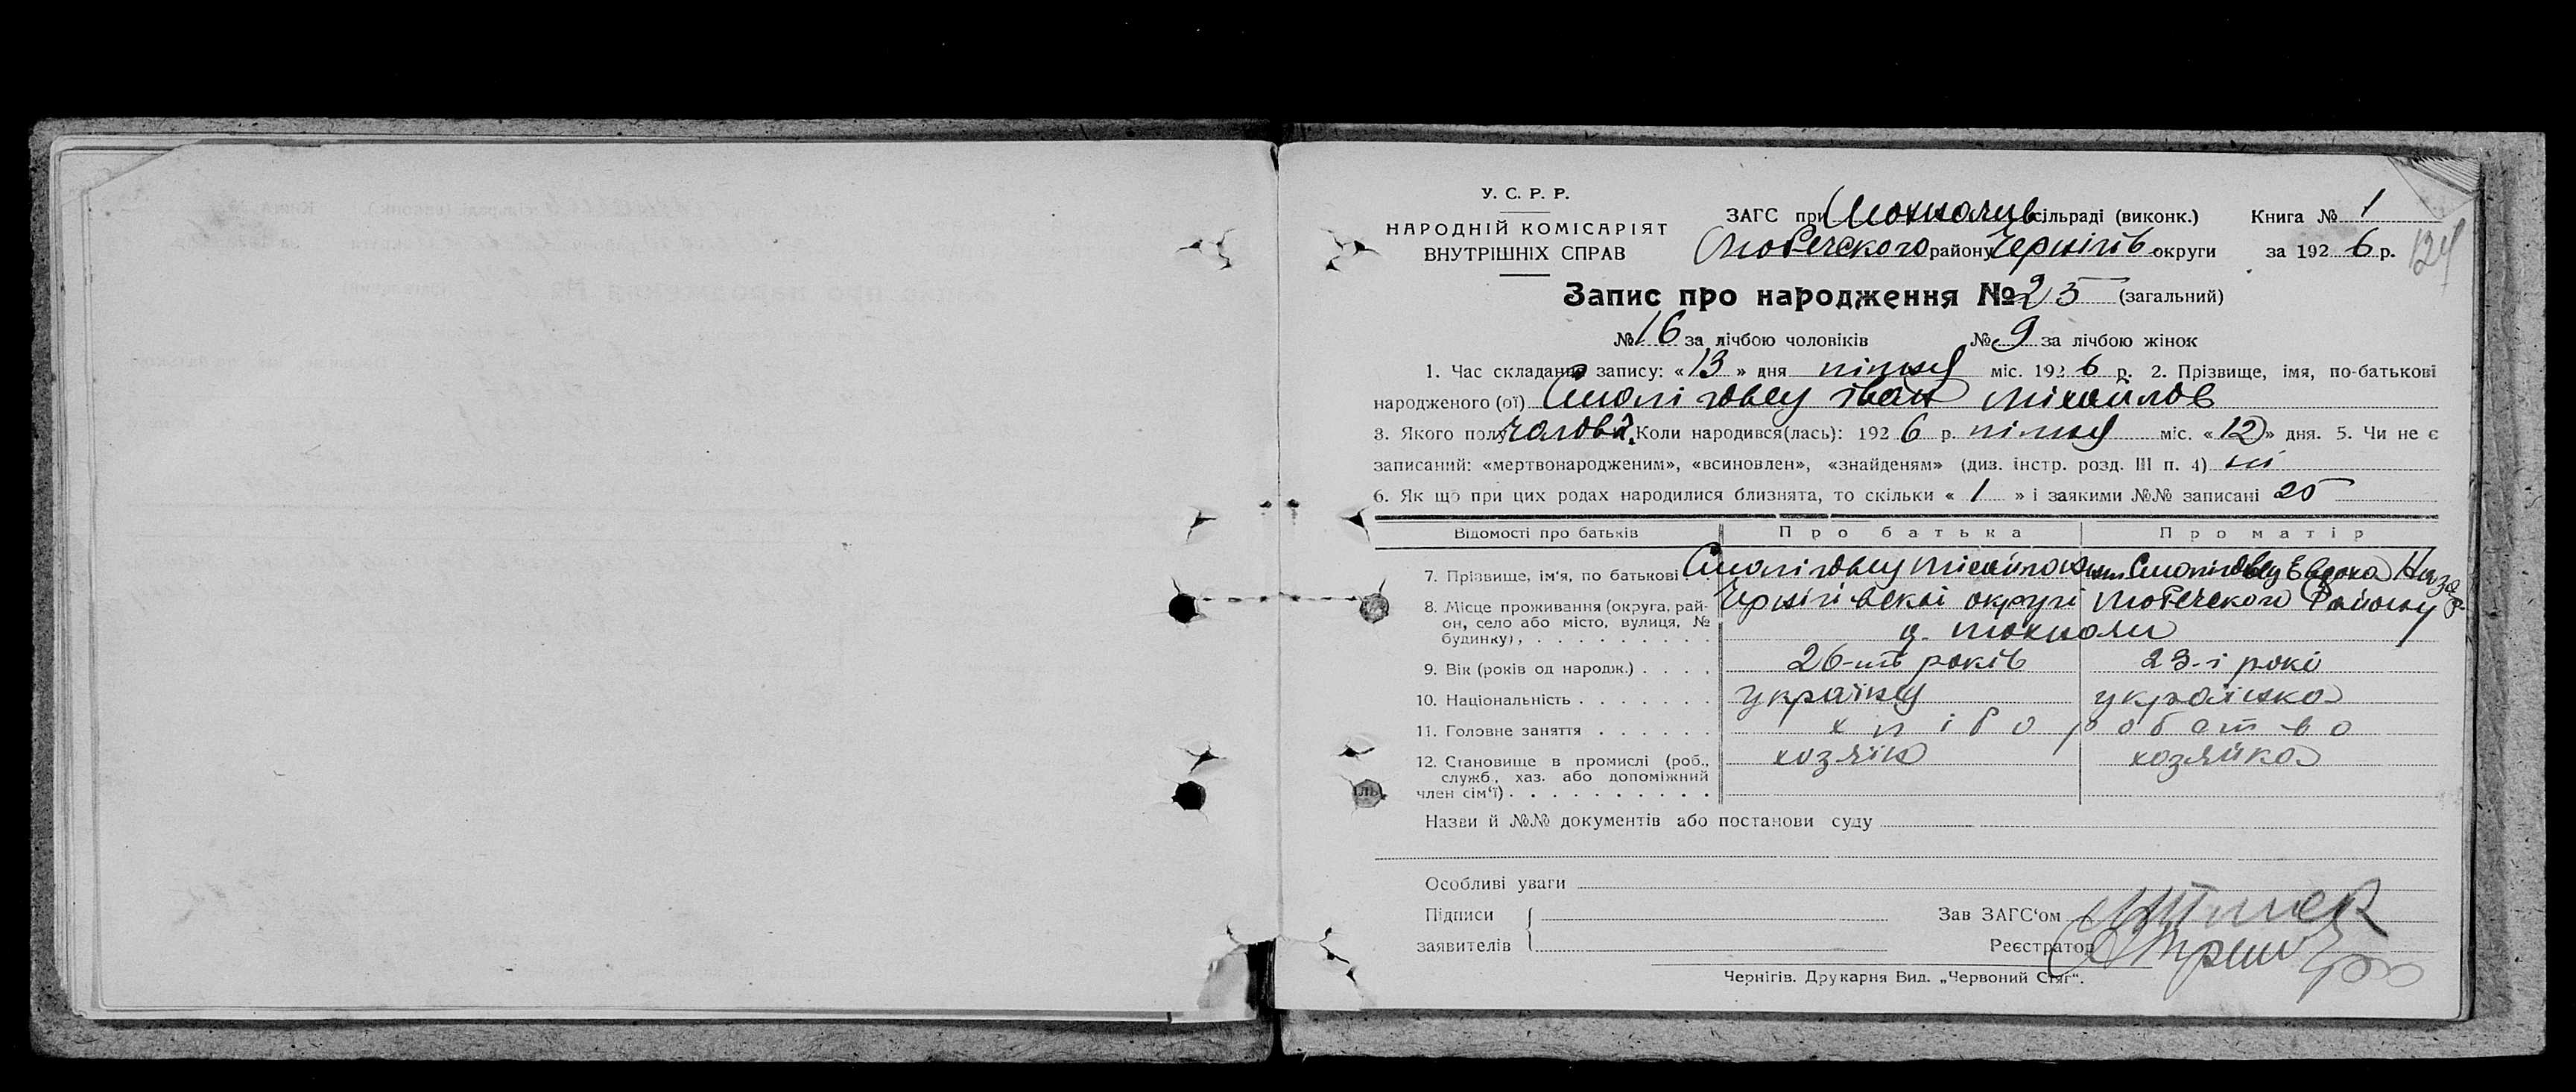 У. С. Р. Р.
НАРОДНІЙ КОМІСАРІЯТ
ВНУТРІШНІХ СПРАВ
ЗАГС при сільраді (виконк.) Книга № 1
району Чернігів округи за 1926 р.
124
Запис про народження № 25 (загальний)
№ 16 за лічбою чоловіків № 9 за лічбою жінок
1. Час складання запису: «13» дня липня міс. 1926 р. 2. Прізвище, імя, по-батькові
народженого (ої) Іван Міхайлов
3. Якого полу чолов. 4. Коли народився(лась): 1926 р. липня міс. «12» дня. 5. Чи не є
записаний: «мертвонародженим», «всиновлен», «знайденям» (диз. інстр. розд. III п. 4) ні
6. Як що при цих родах народилися близнята, то скільки «1» і заякими №№ записані 25
Відомості про батьків Про батька Про матір
7. Прізвище, ім'я, по батькові
8. Місце проживання (округа, рай-
он, село або місто, вулиця, №
будинку)
Чернігівскої округі Района
9. Вік (років од народж.) 26-ть років 23-і рокі
10. Національність українц українка
11. Головне заняття хліборобство
12. Становище в промислі (роб.,
служб., хаз. або допоміжний
член сім'ї)
хозяїн хозяйка
Назви й №№ документів або постанови суду
Особливі уваги
Підписи
заявителів
Зав ЗАГС'ом
Реєстратор
Чернігів. Друкарня Вид. „Червоний Стяг“.